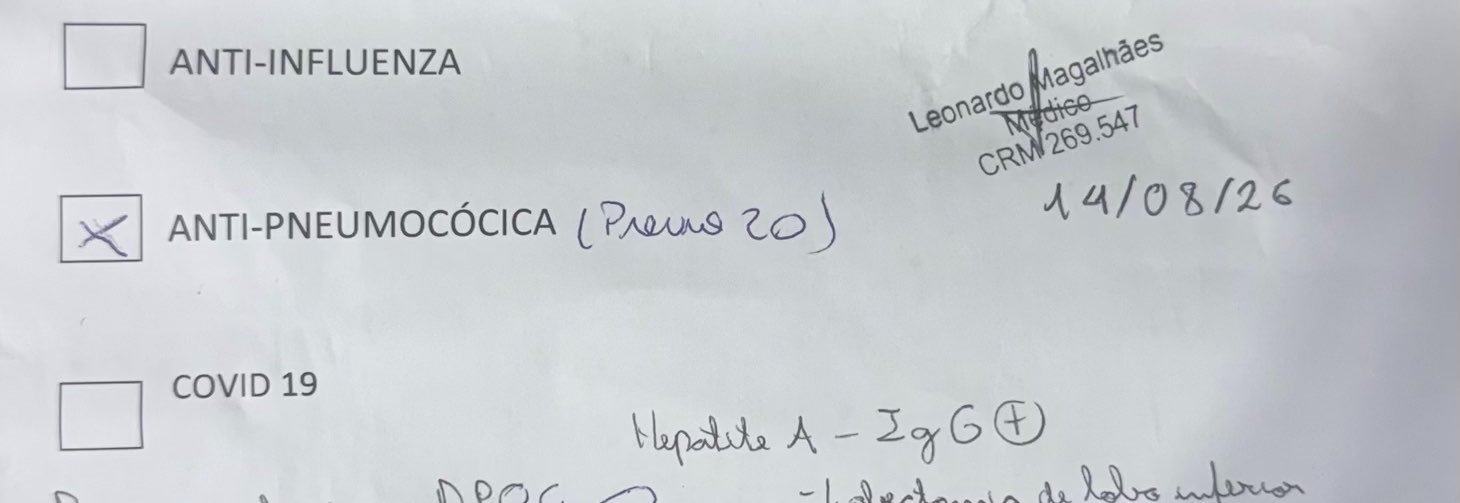 ANTI-INFLUENZA
Leonardo Magalhães
Médico
CRM 269.547
14/08/26
X ANTI-PNEUMOCÓCICA (Preuno 20)
COVID 19
Hepatite A - IgG (+)
DPOC
- Lobectomia de lobo inferior